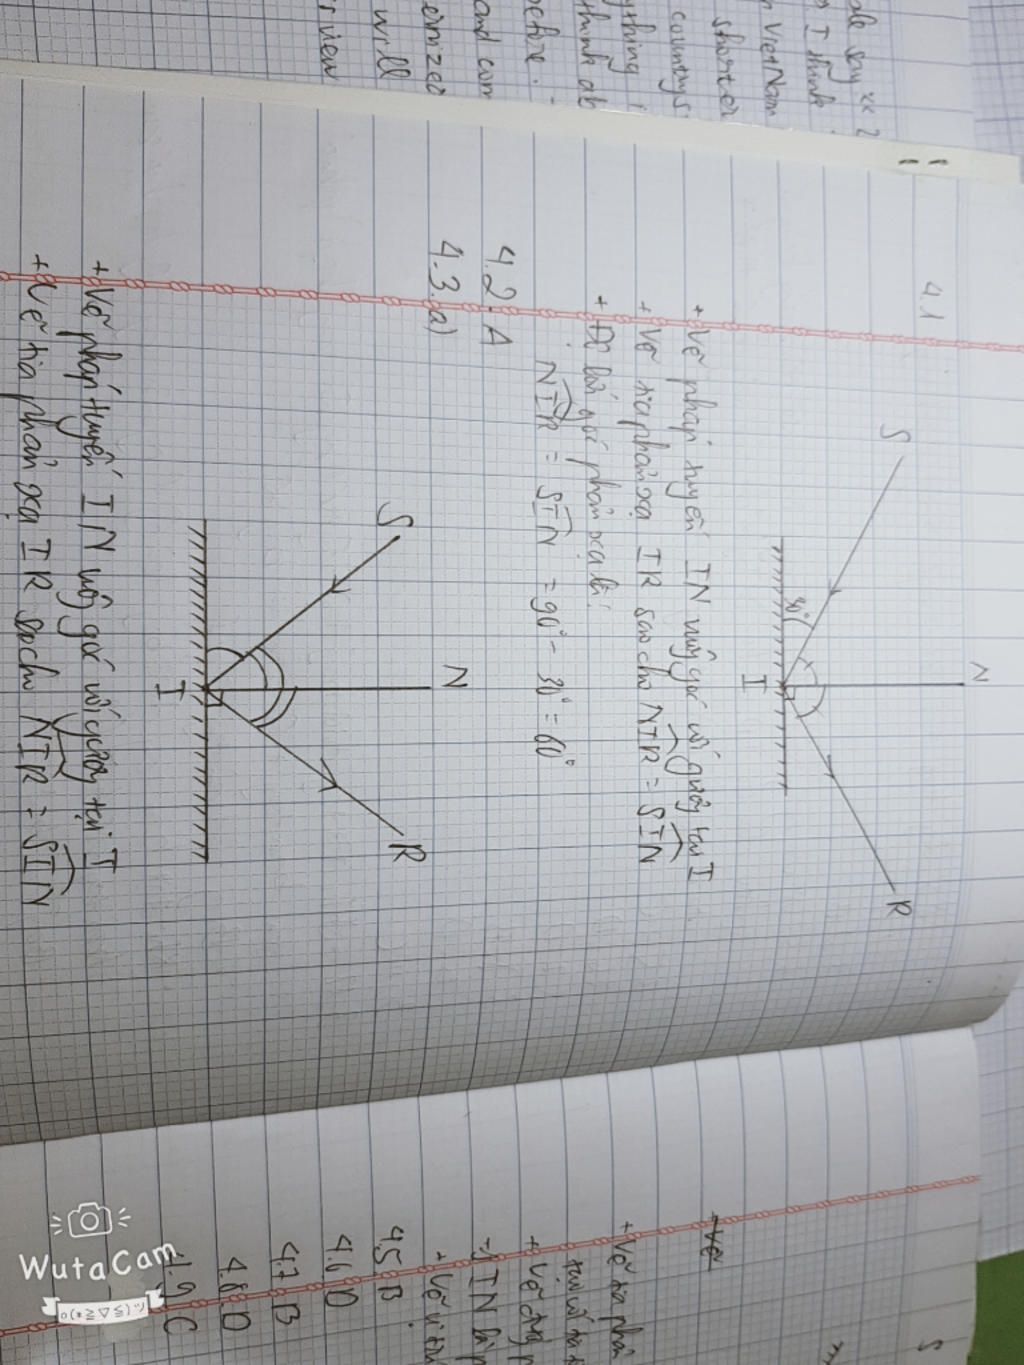 ple say "2
I think
n VietNam
shorter
country s
ything i
think ab
before.
and com
ernized
will
rview
4.1
S
N
R
30°
I
+ Vẽ pháp tuyến IN vuông góc với gương tại I
+ Vẽ tia phản xạ IR sao cho NIR = SIN
+ góc phản xạ là:
NIR = SIN = 90° - 30° = 60°
4.2. A
4.3. a)
S
N
R
I
+ Vẽ pháp tuyến IN vuông góc với gương tại I
+ Vẽ tia phản xạ IR sao cho NIR = SIN
S
+ Vẽ
+ Vẽ tia phả
+ Vẽ
IN là p
+ Vẽ
4.5. B
4.6. D
4.7. B
4.8. D
4.9. C
WutaCam